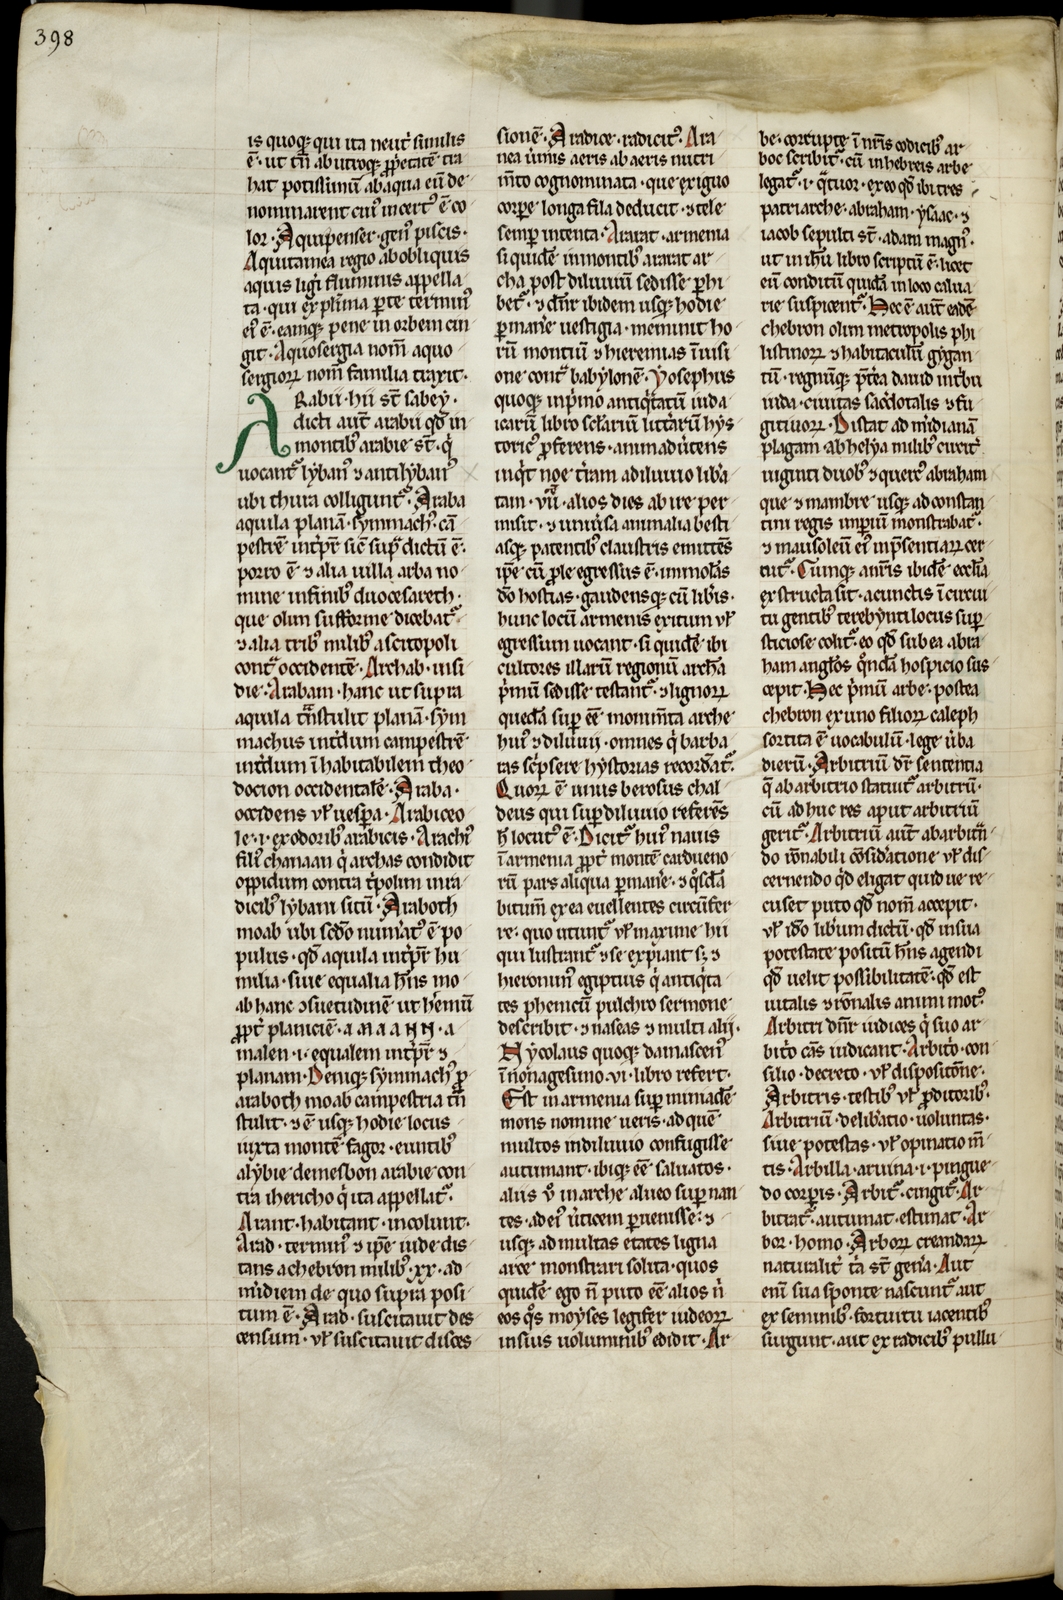 398
is quoq; qui ita neut̓ similis
ē· ut tn̄ ab utroq; ꝓp̓etate tra
hat potissimū ab aqua eū de
nominarent cui᷒ incert᷒ ē co
lor· Aquipenser· gen᷒ piscis·
Aquitanea regio ab obliquis
aquis ligṙ fluminis appella
ta· qui ex plima ꝑte termin᷒
ei᷒ ē· eamq; pene in orbem cin
git· Aquosergia nom̄ aquo
sergioꝝ nom̄ familia traxit·
Arabii· hii st̄ sabey·
dicti aut̄ arabii qđ in
montib᷒ arabie st̄· q̇
uocant᷒ lyban᷒ ⁊ antilyban᷒
ubi thura colligunt᷒· Araba
aquila planā· symmach᷒ cā
pestrē int̓p̓r sic̄ sup̄ dictū ē·
porro ē ⁊ alia uilla arba no
mine in finib᷒ duocesareth·
que olim sufforine dicebat᷒·
⁊ alia trib᷒ milib᷒ a scitopoli
cont̓ occidentē· Archab· insi
die· Arabam· hanc ut supra
aquila t̄nstulit planā· sym
machus int̓dum campestrē
int̓dum īhabitabilem theo
docion occidentalē· Araba·
occidens uł uespa· Arabiceo
le· i· ex odorib᷒ arabicis· Arachi᷒
fili᷒ chanaan q̇ archas condidit
oppidum contra t̓polim in ra
dicib᷒ lybani sitū· Araboth
moab ubi scđo num̓at᷒ ē po
pulus· qđ aquila int̓p̓r hu
milia· siue equalia hn̄s mo
ab hanc ɔsuetudinē ut h̓emū
ꝓpt̓ planiciē· a
malen· i· equalem int̓p̓r ⁊
planam· Deniq; symmach᷒ ꝓ
araboth moab campestria tn̄
stulit· ⁊ ē usq; hodie locus
iuxta montē fagor· euntib᷒
a lybie demesbon arabie con
tra ihericho q̇ ita appellat᷒·
Arant· habitant· incolunt·
Arad· termin᷒ ⁊ ip̄e iude dis
tans a chebron milib᷒· xx· ad
m̓idiem de quo supra posi
tum ē· Arad· suscitauit des
censum· uł suscitauit disces
sionē· A radice· radicit᷒· Ara
nea u̓mis aeris ab aeris nutri
m̄to cognominata· que exiguo
corꝑe longa fila deducit· ⁊ tele
semꝑ intenta· Ararat· armenia
si quidē in montib᷒ ararat ar
cha post diluuiū sedisse ꝑhi
bet᷒· ⁊ dn̄r ibidem usq; hodie
ꝑmane᷒ uestigia· meminit ho
rū montiū ⁊ hieremias ī uisi
one cont̓ babylonē· Yosephus
quoq; in p̓mo antiq̇tatū iuda
icarū libro sclariū litt̓arū hys
toric᷒ ꝓferens· animadu̓tens
inq̇t noe t̓ram a diluuio lib̓a
tam· vii· alios dies abire per
misit· ⁊ uniu̓sa animalia besti
asq; patentib᷒ claustris emittēs
ip̄e cū ꝓle egressus ē· immolās
đo hostias· gaudensq; cū lib̓is·
hunc locū armenis exitum uł
egressum uocant· si quidē ibi
cultores illarū regionū archā
p̓mū sedisse testant᷒· ⁊ lignoꝝ
quedā suꝑ ēē monimta arche
hui᷒ ⁊ diluuij· omnes q̇ barba
ras sc̓psere hystorias recordāt᷒·
Quoꝝ ē unus berosus chal
deus qui suꝑ diluuio referēs
h̄ locut᷒ ē· Dicit᷒ hui᷒ nauis
ī armenia ꝓpt̓ montē cardueno
rū pars aliqua ꝑmane᷒· ⁊ q̇sdā
bitum̄ ex ea euellentes circūfer
re· quo utunt᷒ uł maxime hii
qui lustrant᷒ ⁊ se expiant s; ⁊
hieronim᷒ egiptius q̇ antiq̇ta
tes phenicū pulchro sermone
describit· ⁊ naseas ⁊ multi alij·
Nycolaus quoq; damascen᷒
ī nōnagesimo· vi· libro refert·
Est in armenia suꝑ minadē
mons nomine ueris· ad quē
multos in diluuio confugisse
autumant· ibiq; ēē saluatos·
alius v̊ in arche alueo suꝑ nan
tes· ad ei᷒ u̓ticem ꝑuenisse· ⁊
usq; ad multas etates ligna
arce᷒ monstrari solita· quos
quidē ego n̄ puto ēē alios n̓
eos q̊s moyses legifer iudeoꝝ
in suis uoluminib᷒ edidit· Ar
be· corrupte ī nr̄is codicib᷒ ar
boc scribit᷒· cū in hebreis arbe
legat᷒· i· q̇tuor· ex eo qđ ibi tres
patriarche· abraham· ysaac· ⁊
iacob sepulti st̄· adam magn᷒·
ut in ihū libro scriptū ē· licet
eū conditū quidā in loco calua
rie suspicent᷒· Hec ē aut̄ eadē
chebron olim metropolis phi
listinoꝝ ⁊ habitaculū gygan
tū· regnūq; p̓t̓ea dauid in t̓bu
iuda· ciuitas sac̓dotalis ⁊ fu
gitiuoꝝ· Distat ad m̓idianā
plagam· ab helya milib᷒ circit̓
uiginti duob᷒ ⁊ querc᷒ abraham
que ⁊ mambre usq; ad constan
tini regis imperiū monstrabat᷒·
⁊ mausoleū ei᷒ in p̓sentiaꝝ cer
nit᷒· Cumq; a nr̄is ibidē ecclīa
exstructa sit· a cunctis ī circui
tu gentib᷒ terebynti locus suꝑ
sticiose colit᷒· eo qđ sub ea abra
ham angłos q̊ndā hospicio sus
cepit· Hec p̓mū arbe· postea
chebron ex uno filioꝝ caleph
sortita ē uocabulū· lege u̓ba
dierū· Arbitriū dr̄ sententia
q̄ ab arbitrio statuit᷒ arbitrū·
cū ad huc res aput arbitriū
gerit᷒· Arbitriū aut̄ ab arbitn̄
do rōnabili cōsid̓atione uł dis
cernendo qđ eligat quid ue re
cuset puto qđ nom̄ accepit·
uł iđo lib̓um dictū· qđ in sua
potestate positū hn̄s agendi
qđ uelit possibilitatē· qđ est
uitalis ⁊ rōnalis animi mot᷒·
Arbitri dn̄r iudices q̇ suo ar
bit̓o cās iudicant· Arbit̓o· con
silio· decreto· uł dispositōne·
Arbitris· testib᷒ uł ꝓditorib᷒·
Arbitriū· delib̓atio· uoluntas·
siue potestas· uł opinatio m̄
tis· Arbilla· aruina· i· pingue
do corꝑis· Arbit᷒· cingit᷒· Ar
bitrat᷒· autumat· estimat· Ar
bor· homo· Arboꝝ creandaꝝ
naturalit̓ t̓a st̄ gen̓a· Aut
enī sua sponte nascunt᷒· aut
ex seminib᷒· fortuitu iacentib᷒
surgunt· aut ex radicib᷒ pullu